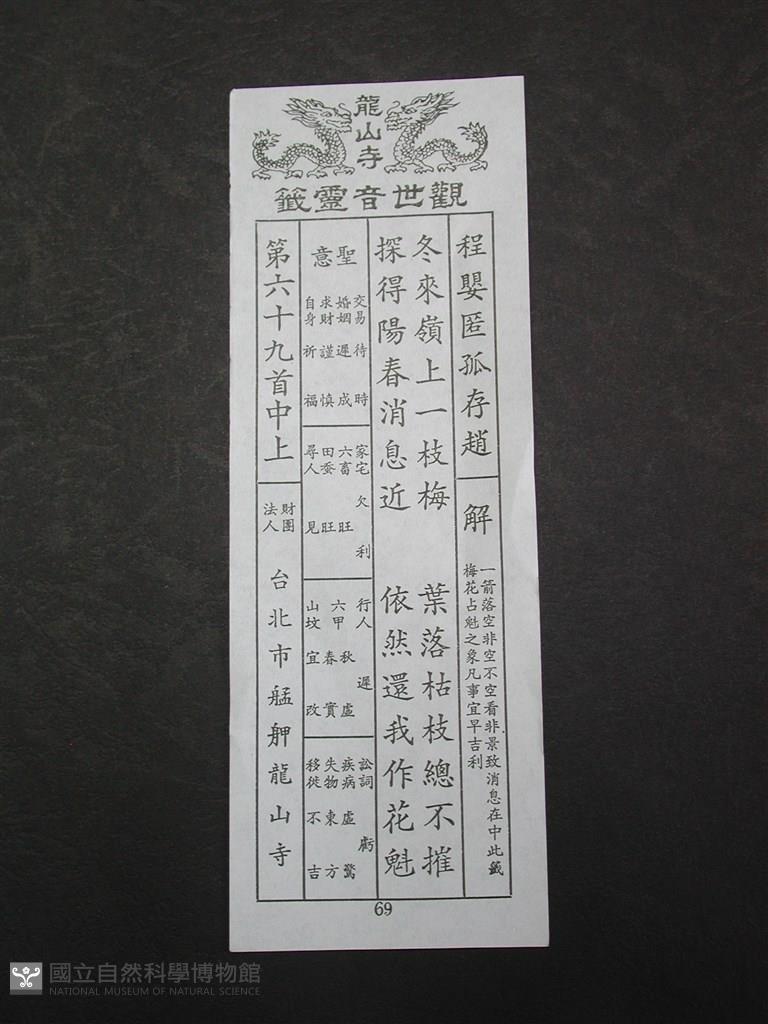 龍山寺
觀世音靈籤
程嬰匿孤存趙
解
一箭落空非空不空看非景致消息在中此籤
梅花占魁之象凡事宜早吉利
冬來嶺上一枝梅
葉落枯枝總不摧
探得陽春消息近
依然還我作花魁
聖意
交易待時
婚姻遲成
求財謹慎
自身祈福
家宅欠利
六畜旺
田蚕旺
尋人見
行人遲
六甲秋虛
春實
山坟宜改
訟詞虧
疾病虛驚
失物東方
移徙不吉
第六十九首中上
財團
法人
台北市艋舺龍山寺
69
國立自然科學博物館
NATIONAL MUSEUM OF NATURAL SCIENCE